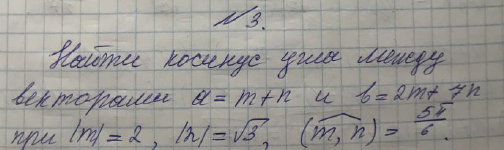 №3.
Найти косинус угла между
векторами a=m+n и b=2m+7n
при |m|=2, |n|=√3, (m,^n)=5π/6.